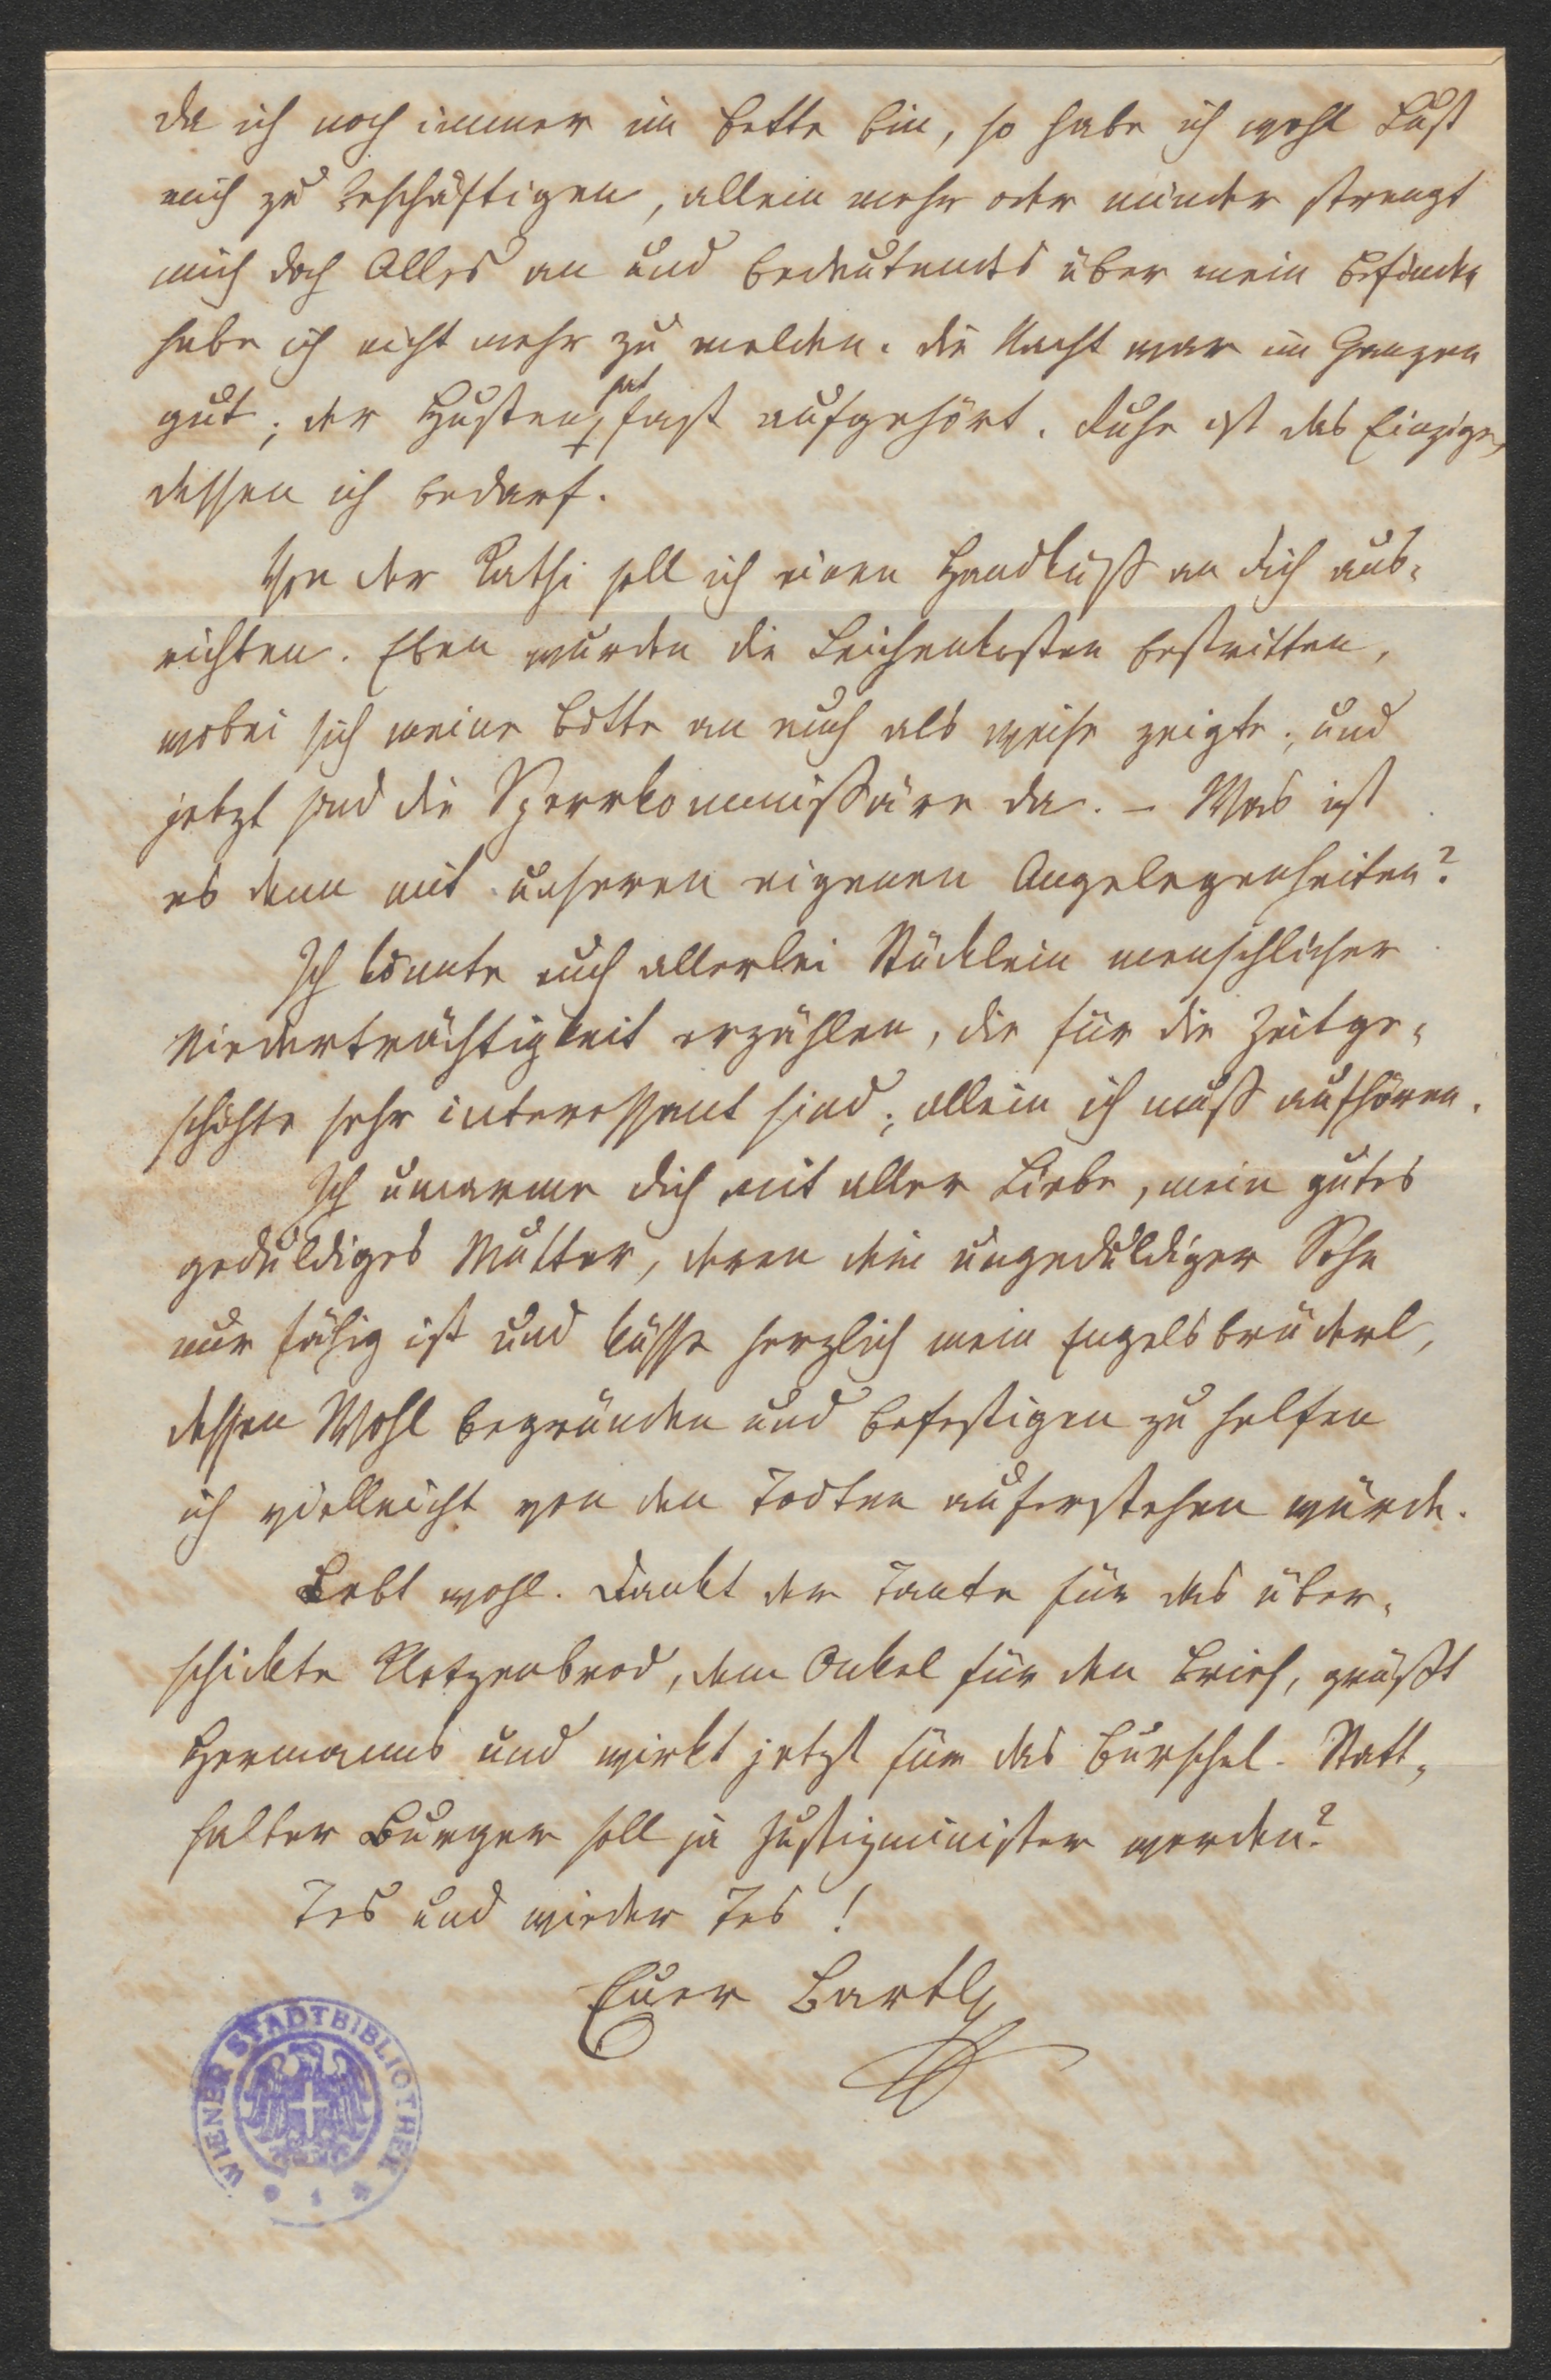 da ich noch immer im Bette bin, so habe ich wohl Lust
mich zu beschäftigen, allein mehr oder minder strengt
mich doch Alles an und bedeutendes über mein Befinden
habe ich nicht mehr zu melden. Die Nacht war im Ganzen
gut; der Husten hat fast aufgehört. Ruhe ist das Einzige,
dessen ich bedarf.
Von der Kathi soll ich einen Handkuß an dich aus-
richten. Eben wurden die Leichenkosten bestritten,
wobei sich meine Bitte an euch als weise zeigte; und
jetzt sind die Sperrkommissäre da. – Was ist
es denn mit unseren eigenen Angelegenheiten?
Ich könnte euch allerlei Stücklein menschlicher
Niederträchtigkeit erzählen, die für die Zeitge-
schichte sehr interessant sind; allein ich muß aufhören.
Ich umarme dich mit aller Liebe, mein gutes
geduldiges Mutter, deren dein ungeduldiger Sohn
nur fähig ist und küsse herzlich mein Engelsbrüderl,
dessen Wohl begründen und befestigen zu helfen
ich vielleicht von den Todten auferstehen würde.
Lebt wohl. Dankt der Tante für das über-
schickte Kletzenbrod, dem Onkel für den Brief, grüßt
Hermanns und wirkt jetzt für das Burschel. Statt-
halter Burger soll ja Justizminister werden?
und wieder !
Euer Bartl
WIENER STADTBIBLIOTHEK